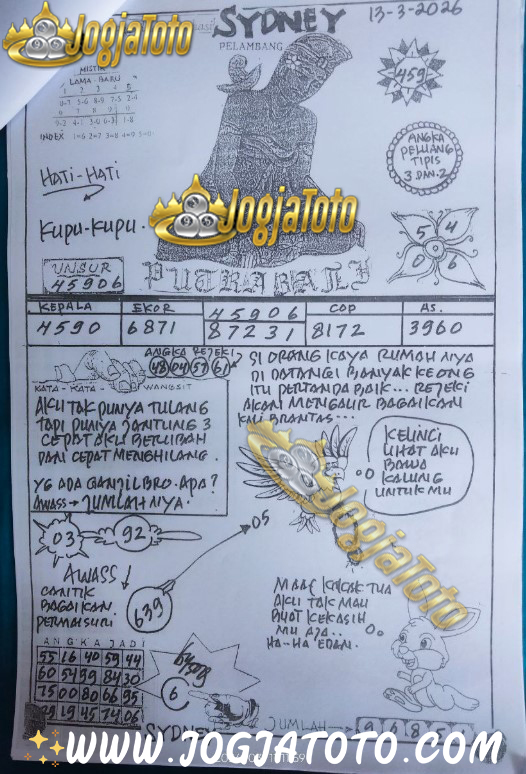 SYDNEY
13-3-2026
JogjaToto
PELAMBANG
MISTIK
LAMA - BARU
459
ANGKA
PELUANG
TIPIS
3 DAN 2
HATI-HATI
KUPU-KUPU.
JogjaToto
5 4
0 6
UNSUR
45906
PUTRABALI
KEPALA EKOR 45906 COP AS.
4590 6871 87231 8172 3960
ANGKA REJEKI
48 04 57 61
KATA - KATA - WANGSIT
AKU TAK PUNYA TULANG
TAPI PUNYA JANTUNG 3
CEPAT AKU BERUBAH
DAN CEPAT MENGHILANG.
YG ADA GANJIL BRO. APA?
AWASS → JUMLAHNYA.
SI ORANG KAYA RUMAHNYA
DI DATANGI BANYAK KEONG
ITU PERTANDA BAIK... REJEKI
AKAN MENGALIR BAGAIKAN
KALI BRANTAS...
KELINCI
LIHAT AKU
BAWA
KALUNG
UNTUK MU
JogjaToto
03 92
05
AWASS!
CANTIK
BAGAIKAN
PERMAISURI
639
MAAF KAKAK TUA
AKU TAK MAU
BUAT KEKASIH
MU AJA..
HA-HA EDAN.
ANGKA JADI
55 16 40 59 44
60 54 99 84 30
75 00 80 66 95
29 19 45 74 06
6
SYDNEY
JUMLAH →
WWW.JOGJATOTO.COM